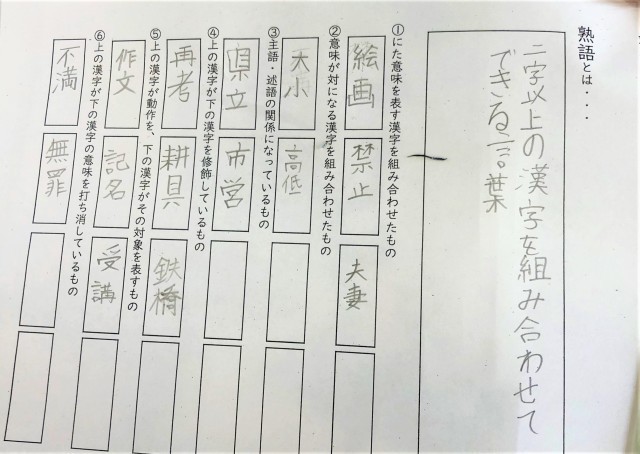 熟語とは・・・
二字以上の漢字を組み合わせて
できる言葉
①にた意味を表す漢字を組み合わせたもの
絵画 禁止 夫妻
②意味が対になる漢字を組み合わせたもの
大小 高低
③主語・述語の関係になっているもの
県立 市営
④上の漢字が下の漢字を修飾しているもの
再考 耕具 鉄橋
⑤上の漢字が動作を、下の漢字がその対象を表すもの
作文 記名 受講
⑥上の漢字が下の漢字の意味を打ち消しているもの
不満 無罪